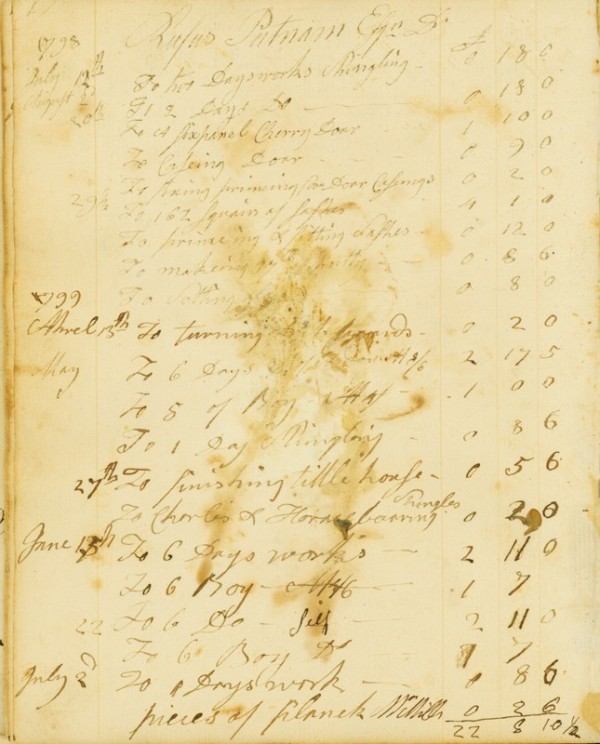 1798 Rufus Putnam Esqr Dr
July 12th To two Daysworks Shingling - 0 18 0
August 2d To 2 Days Do - 0 18 0
20th To A sixpanel Cherry Door - 1 10 0
To Caseing Door - 0 9 0
To fixing primeing for Door Casings 0 2 0
29th To 162 Squairs of Sashes 4 1 0
To primeing & setting Sashes - 0 12 0
To makeing 0 8 6
To 0 8 0
1799
Aprel 13th To turning 0 2 0
May To 6 Days 2 17 5
To 5 of Boy 1 0 0
To 1 Day Shingling 0 8 6
27th To finishing little house - 0 5 6
To Charles & Horace Shingles 0 2 0
June 13th To 6 Days works - 2 11 0
To 6 Boy - 1 7
22 To 6 Do - Self 2 11 0
To 6 Boy Do 1 7
July 2d To Days work - 0 8 6
pieces of plank 0 2 6
22 8 10 1/2